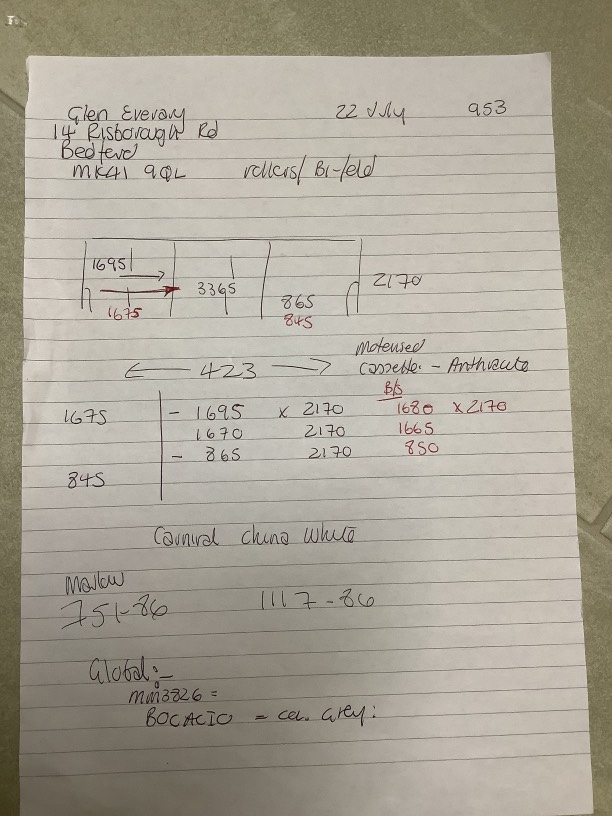 Glen Everay 22 July 953
14 Risborough Rd
Bedford
MK41 9QL rollers/ Bi-fold
1695
3365
2170
1675
865
845
423
Motorised
Cassette. - Anthracite
B/S
1675 - 1695 x 2170 1680 x 2170
1670 2170 1665
- 865 2170 850
845
Carnival China White
Marlow
751-86 1117-86
Global:-
mm3826 =
BOCACIO = col. Grey: